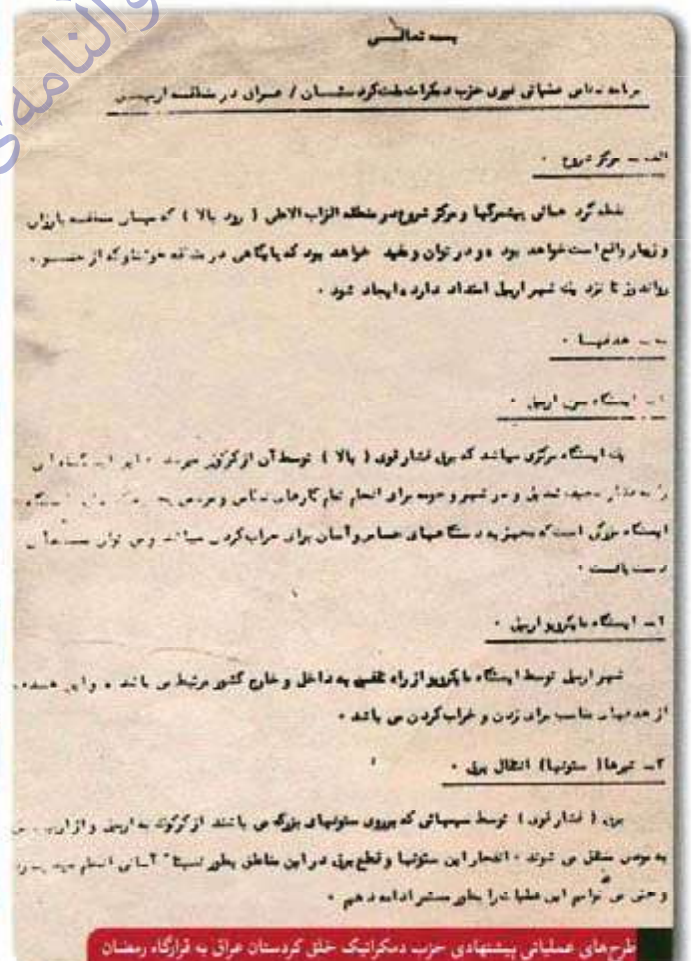 بسمه تعالـــی
برنامه نظامی عملیاتی فوری حزب دمکرات ملت کردستــان / عــراق در منطقــه اربیــل
الف ــ مرکز شروع ٠
نقطه گرد همائی پیشمرگها و مرکز شروع در منطقه الزاب الاعلی ( رود بالا ) که میــان منطقــه بارزان
و زیبار واقع است خواهد بود و در توان و مفید خواهد بود که پایگاهی در منطقه خوشناو که از
رواندوز تا نزدیک شهر اربیل امتداد دارد ، ایجاد شود ٠
ب ــ هدفهــا ٠
١ــ ایستگاه اربیل ٠
یک ایستگاه مرکزی میباشد که برق فشار قوی ( بالا ) توسط آن از کرکوک میرسد
را به مقدار تبدیل و در شهر و حومه برای انجام تمام کارهای نظامی و
ایستگاه بزرگی است که مجهز به دستگاههای حساس و آسان برای خراب کردن میباشد و می توان
دست یافــت ٠
٢ــ ایستگاه مایکرویو اربیل ٠
شهر اربیل توسط ایستگاه مایکرویو از راه تلفنی به داخل و خارج کشور مرتبط می باشد ، و این هــدف
از هدفهای مناسب برای زدن و خراب کردن می باشد ٠
٣ــ تیرها( ستونها) انتقال برق ٠
برق ( فشار قوی ) توسط سیمهائی که بروی ستونهای بزرگ می باشند از کرکوک به اربیل و از اربیل
به موصل منتقل می شوند ٠ انفجار این ستونها و قطع برق در این مناطق بطور نسبتا" آسانی انجام
و حتی می توانیم این عملیات را بطور مستمر ادامه دهیم ٠
طرح‌های عملیاتی پیشنهادی حزب دمکراتیک خلق کردستان عراق به قرارگاه رمضان